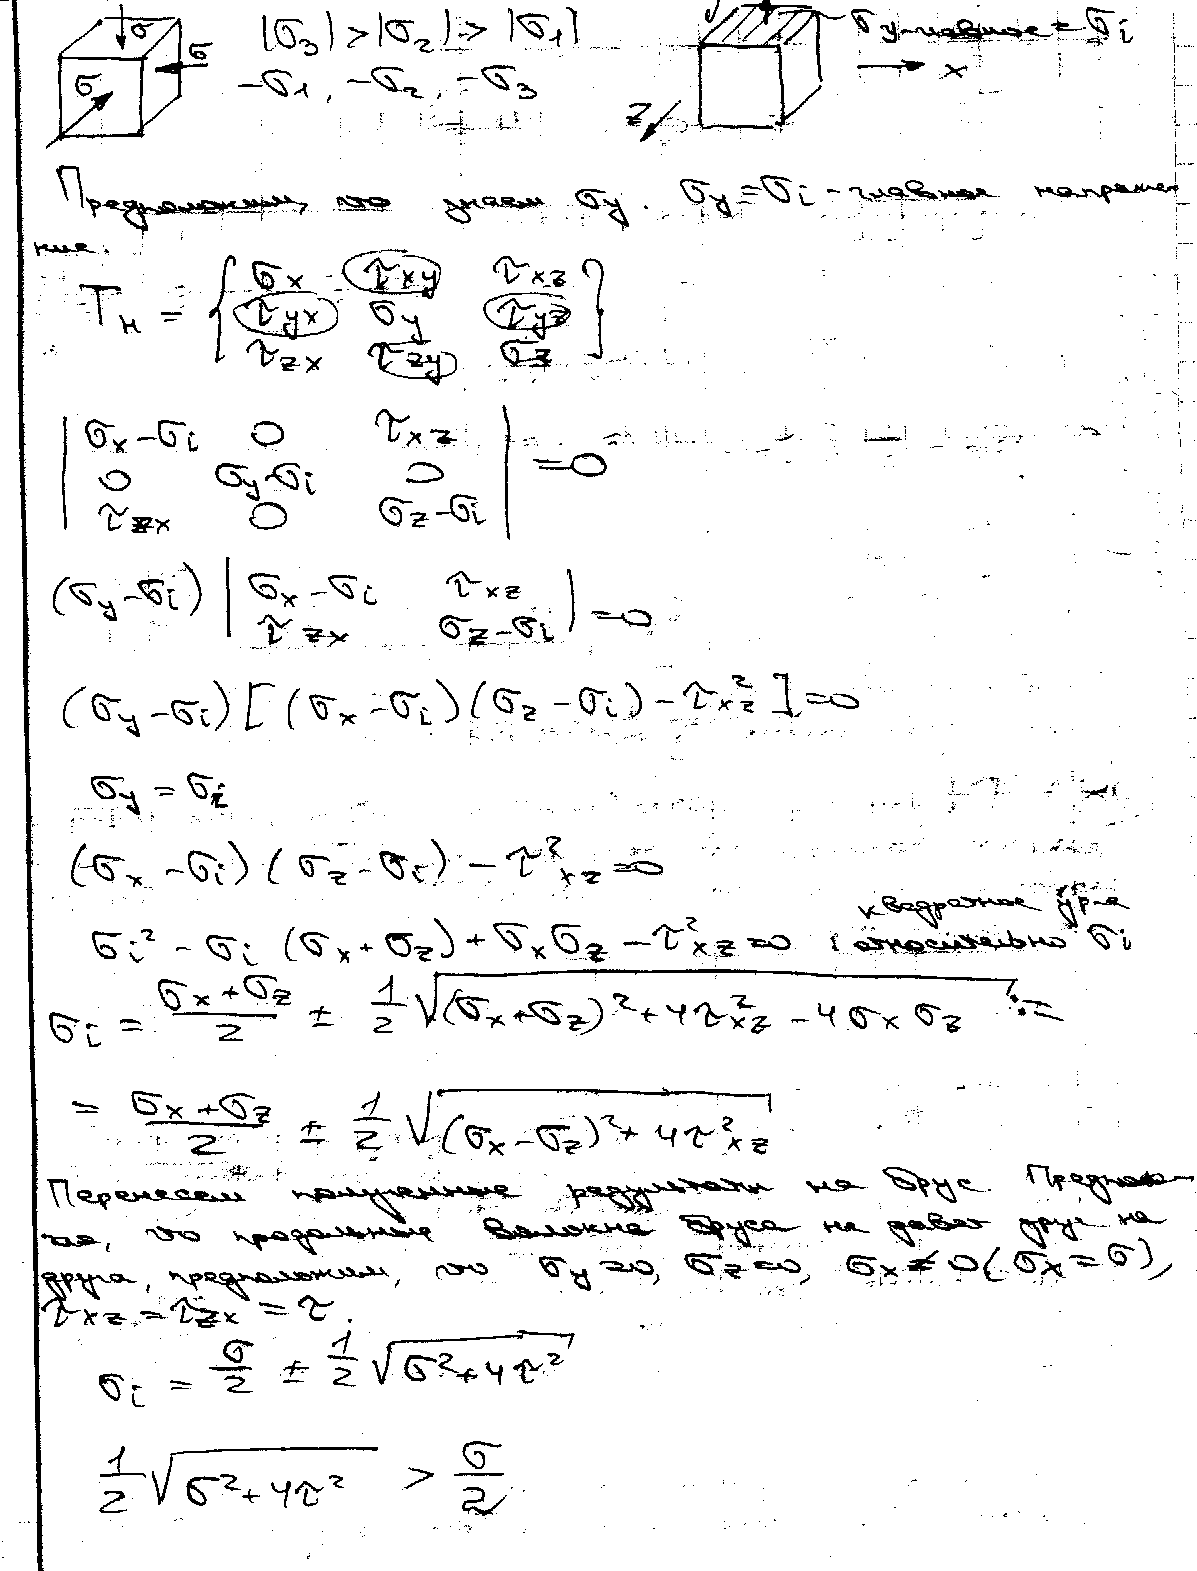 σ |σ₃| > |σ₂| > |σ₁| σy-главное = σi
σ -σ₁, -σ₂, -σ₃ → x
σ z
Предположим, что знаем σy. σy = σi - главное напряже-
ние.
Tн = { σx τxy τxz
τyx σy τyz
τzx τzy σz }
| σx-σi 0 τxz |
| 0 σy-σi 0 | = 0
| τzx 0 σz-σi |
(σy-σi) | σx-σi τxz | = 0
| τzx σz-σi |
(σy-σi)[(σx-σi)(σz-σi)-τxz²]=0
σy = σi
(σx-σi)(σz-σi)-τ²xz=0
квадратное ур-е
σi² - σi (σx+σz)+σxσz-τ²xz=0 относительно σi
σi = (σx+σz)/2 ± 1/2 √((σx+σz)²+4τ²xz-4σxσz) =
= (σx+σz)/2 ± 1/2 √((σx-σz)²+4τ²xz)
Перенесем полученные результаты на брус. Предпола-
гая, что продольные волокна бруса не давят друг на
друга, предположим, что σy=0, σz=0, σx≠0(σx=σ),
τxz=τzx=τ.
σi = σ/2 ± 1/2 √(σ²+4τ²)
1/2 √(σ²+4τ²) > σ/2